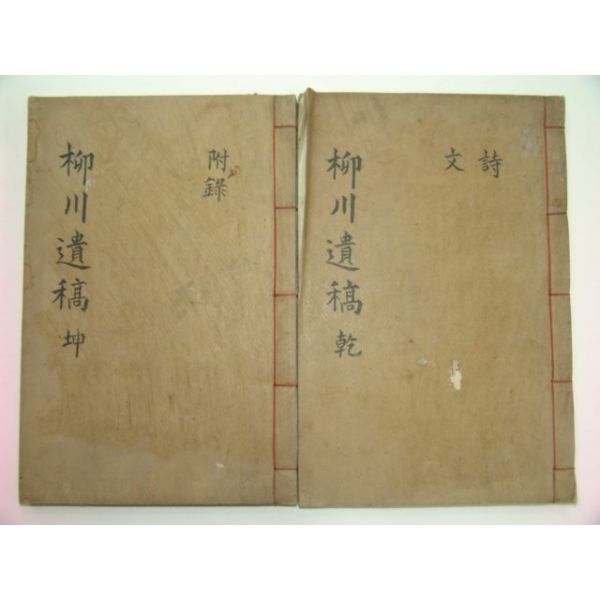 詩
文
柳川遺稿 乾
附錄
柳川遺稿 坤